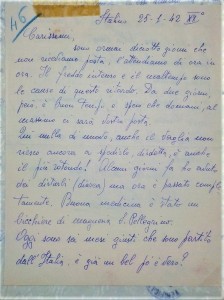 46
Stalino 25-1-42 XX°
Carissimi,
sono ormai diciotto giorni che
non vediamo posta, e attendiamo di ora in
ora. Il freddo intenso e il maltempo sono
le cause di questo ritardo. Da due giorni
però è buon tempo e spero che domani, al
massimo ci sarà della posta.
In nulla di male, anche il vaglia non
riesco ancora a spedirlo, diretto, è anche
il più ritardo! Alcuni giorni fa ho avuto
dei disturbi (diarrea) ma ora è passato comple
tamente. Buona medicina è stato un
bicchiere di magnesia S. Pellegrino.
Oggi sono sei mesi giusti che sono partito
dall'Italia, è già un bel po' è vero?